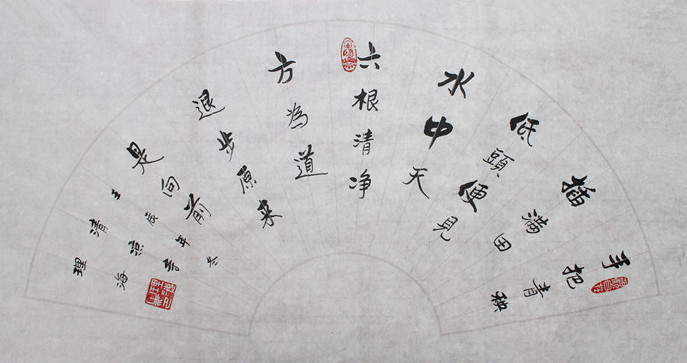 手把青秧
插滿田
低頭便現
水中天
六根清净
方為道
退步原来
是向前
壬辰年冬
清凉書
理海